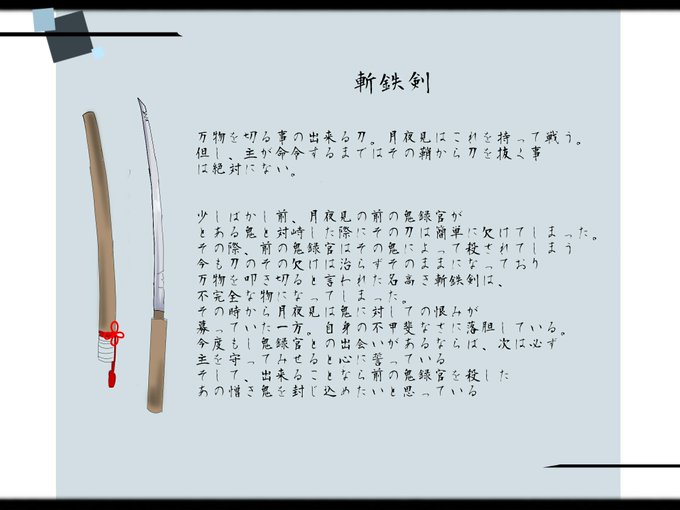 斬鉄剣
万物を切る事の出来る刀。月夜見はこれを持って戦う。
但し、主が命令するまではその鞘から刀を抜く事
は絶対にない。
少しばかし前、月夜見の前の鬼録官が
とある鬼と対峙した際にその刀は簡単に欠けてしまった。
その際、前の鬼録官はその鬼によって殺されてしまう
今も刀のその欠けは治らずそのままになっており
万物を叩き切ると言われた名高き斬鉄剣は、
不完全な物になってしまった。
その時から月夜見は鬼に対しての恨みが
募っていた一方。自身の不甲斐なさに落胆している。
今度もし鬼録官との出会いがあるならば、次は必ず
主を守ってみせると心に誓っている
そして、出来ることなら前の鬼録官を殺した
あの憎き鬼を封じ込めたいと思っている